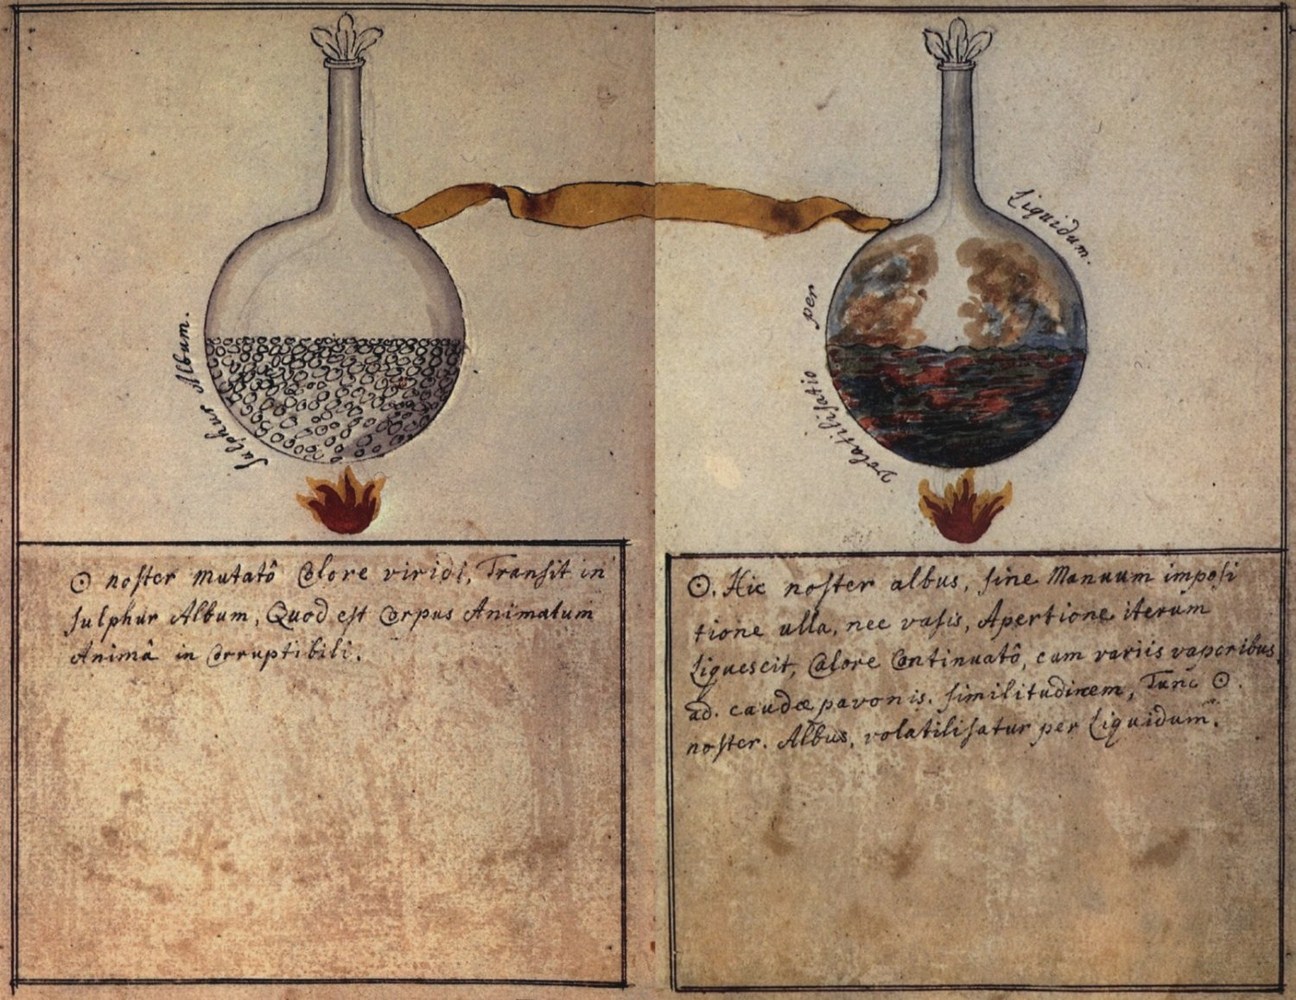 Sulphur Album.
☉ noster mutatô Colore viridi, Transit in
Sulphur Album, Quod est Corpus Animatum
Animâ in Corruptibili.
volatilisatio per
Liquidum.
☉. Hic noster albus, sine Manuum imposi
tione ulla, nec vasis, Apertione iterum
Liquescit, Calore Continuatô, cum variis vaporibus,
ad. caudæ pavonis. similitudinem, Tunc ☉.
noster. Albus, volatilisatur per Liquidum.